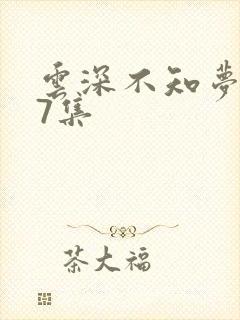 雲深不知夢
7集
茶大福